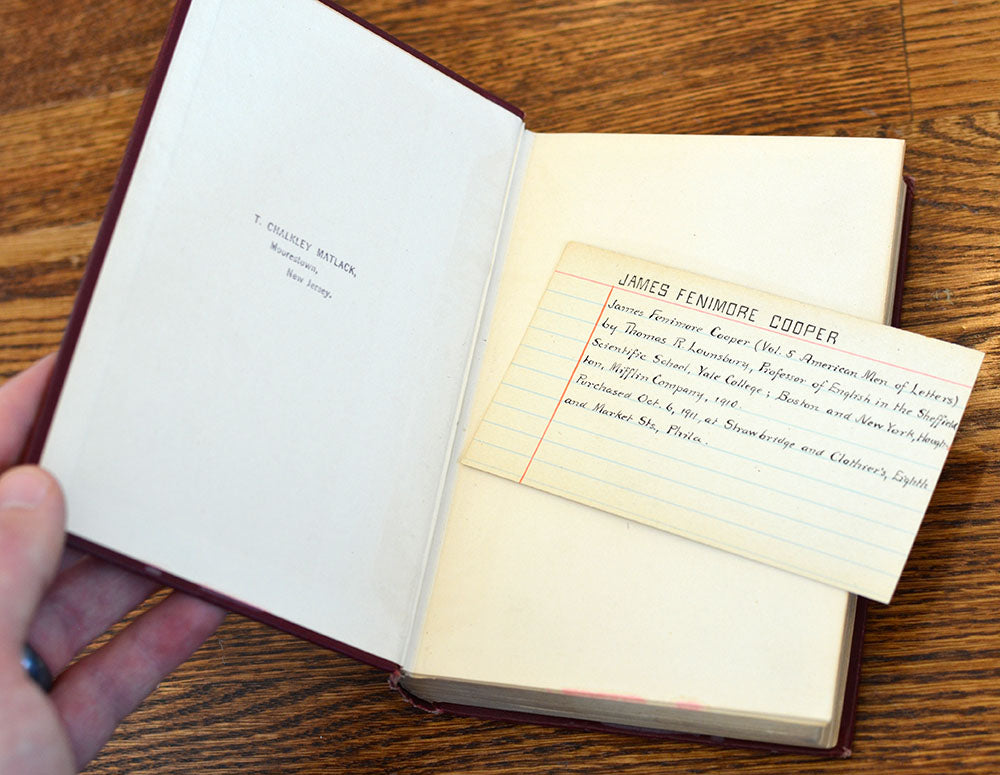 T. CHALKLEY MATLACK,
Moorestown,
New Jersey.
JAMES FENIMORE COOPER
James Fenimore Cooper (Vol. 5 American Men of Letters)
by Thomas R. Lounsbury, Professor of English in the Sheffield
Scientific School, Yale College; Boston and New York, Hough-
ton, Mifflin Company, 1910.
Purchased Oct. 6, 1911, at Strawbridge and Clothier's, Eighth
and Market Sts., Phila.